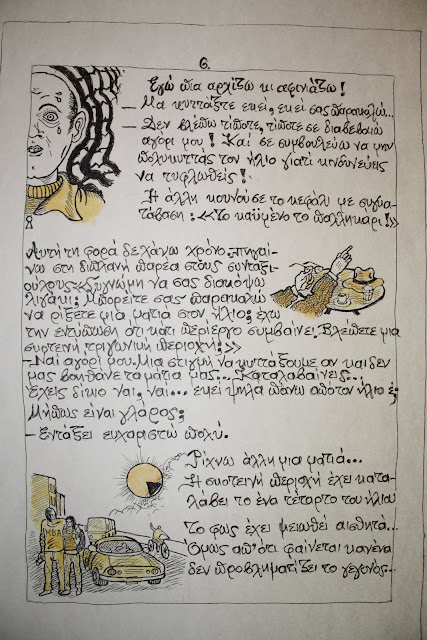 6.
Εγώ πια αρχίζω κι αφινιάζω!
— Μα κυττάξτε εκεί, εκεί σας παρακαλώ...
— Δεν βλέπω τίποτε, τίποτε σε διαβεβαιώ
αγόρι μου! Καί σε συμβουλεύω να μην
πολυκυττάς τον ήλιο γιατί κινδυνεύεις
να τυφλωθείς!
Η άλλη κουνούσε το κεφάλι με συγκα-
τάβαση: «Το καϋμένο το παλληκάρι!»
Αυτή τη φορά δε χάνω χρόνο. πηγαί-
νω στη διπλανή παρέα στους συνταξι-
ούχους. «Συγνώμη να σας διακόψω
λιγάκι; Μπορείτε σας παρακαλώ
να ρίξετε μια ματιά στον ήλιο; έχω
την εντύπωση ότι κάτι περίεργο συμβαίνει. Βλέπετε μια
σκοτεινή τριγωνική περιοχή;»
— Ναί αγόρι μου. Μια στιγμή να κυττάξουμε αν και δεν
μας βοηθάνε τα μάτια μας... Καταλαβαίνεις...
Έχεις δίκιο ναι, ναι... εκεί ψηλά πάνω από τον ήλιο ε;
Μήπως είναι γλάρος;
— Εντάξει ευχαριστώ πολύ.
Ρίχνω άλλη μια ματιά...
Η σκοτεινή περιοχή έχει κατα-
λάβει το ένα τέταρτο του ήλιου
Το φως έχει μειωθεί αισθητά...
Όμως απ' ότι φαίνεται κανένα
δεν προβληματίζει το γεγονός...
MBA